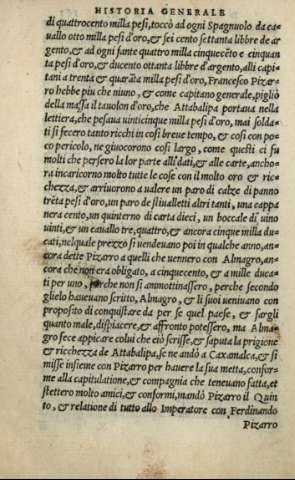 HISTORIA GENERALE
di quattrocento milla pesi, toccò ad ogni Spagnuolo da ca-
uallo otto milla pesi d'oro, & sei cento settanta libre de ar
gento, & ad ogni fante quattro milla cinquecẽto e cinquan
ta pesi d'oro, & ducento ottanta libre d'argento, alli capi
tani a trenta & quarãta milla pesi d'oro, Francesco Pizar
ro hebbe piu che niuno, & come capitano generale, pigliò
della massa il tauolon d'oro, che Attabalipa portaua nella
lettiera, che pesaua uinticinque milla pesi d'oro, mai solda-
ti si fecero tanto ricchi in cosi breue tempo, & cosi con po-
co pericolo, ne giuocorono cosi largo, come questi ci fu
molti che persero la lor parte alli dati, & alle carte, ancho-
ra incaricorno molto tutte le cose con il molto oro & ric
chezza, & arriuorono a ualere un paro di calze di panno
trẽta pesi d'oro, un paro de stiualletti altri tanti, una cappa
nera cento, un quinterno di carta dieci, un boccale di uino
uinti, & un cauallo tre, quattro, & ancora cinque milla du-
cati, nel quale prezzo si uendeuano poi in qualche anno, an-
cora dette Pizarro a quelli che uennero con Almagro, anc
ora che non era obligato, a cinquecento, & a mille duca-
ti per uno, perche non si ammottinassero, perche secondo
glielo haueuano scritto, Almagro, & li suoi ueniuano con
proposito di conquistare da per se quel paese, & fargli
quanto male, dispiacere, & affronto potessero, ma Alma
gro fece appicare colui che ciò scrisse, & saputa la prigione
& ricchezza de Attabalipa, se ne andò a Caxamalca, & si
misse insieme con Pizarro per hauere la sua metta, confor-
me alla capitulatione, & compagnia che teneuano fatta, et
stettero molto amici, & conformi, mandò Pizarro il Quin
to, & relatione di tutto allo Imperatore con Ferdinando
Pizarro